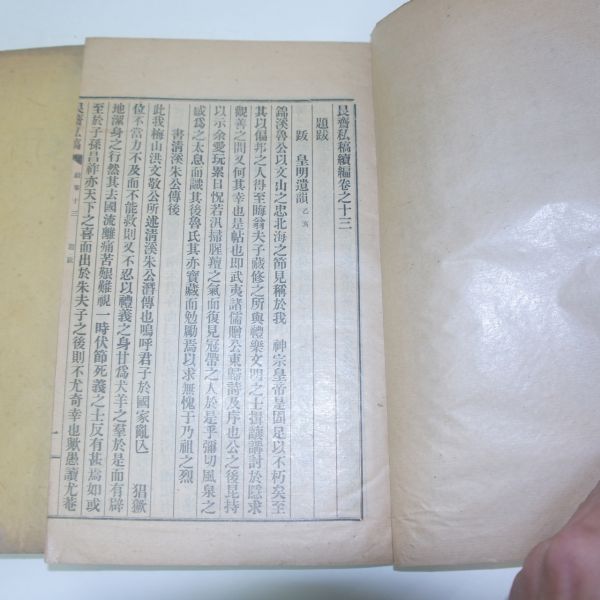 艮齋私稿續編卷之十三
題跋
跋 皇明遺韻 乙亥
錦溪魯公以文山之忠北海之節見稱於我 神宗皇帝是固足以不朽矣至
其以偏邦之人得至晦翁夫子藏修之所與禮樂文明之士揖讓講討於隱求
觀善之間又何其幸也是帖也即武夷諸儒贈公東歸詩及序也公之後昆持
以示余愛玩累日怳若汎掃腥羶之氣而復見冠帶之人於是乎彌切風泉之
感爲之太息而識其後魯氏其亦寶藏而勉勵焉以求無愧于乃祖之烈
書清溪朱公傳後
此我梅山洪文敬公所述清溪朱公潛傳也嗚呼君子於國家亂亾 猖獗
位不當力不及而不能救則又不忍以禮義之身甘爲犬羊之羣於是而有辟
地潔身之行然其去國流離痛苦艱難視一時伏節死義之士反有甚焉如或
至於子孫昌祥亦天下之喜而出於朱夫子之後則不尤奇幸也歟愚讀尤菴
艮齋私稿 續卷十三 題跋 一